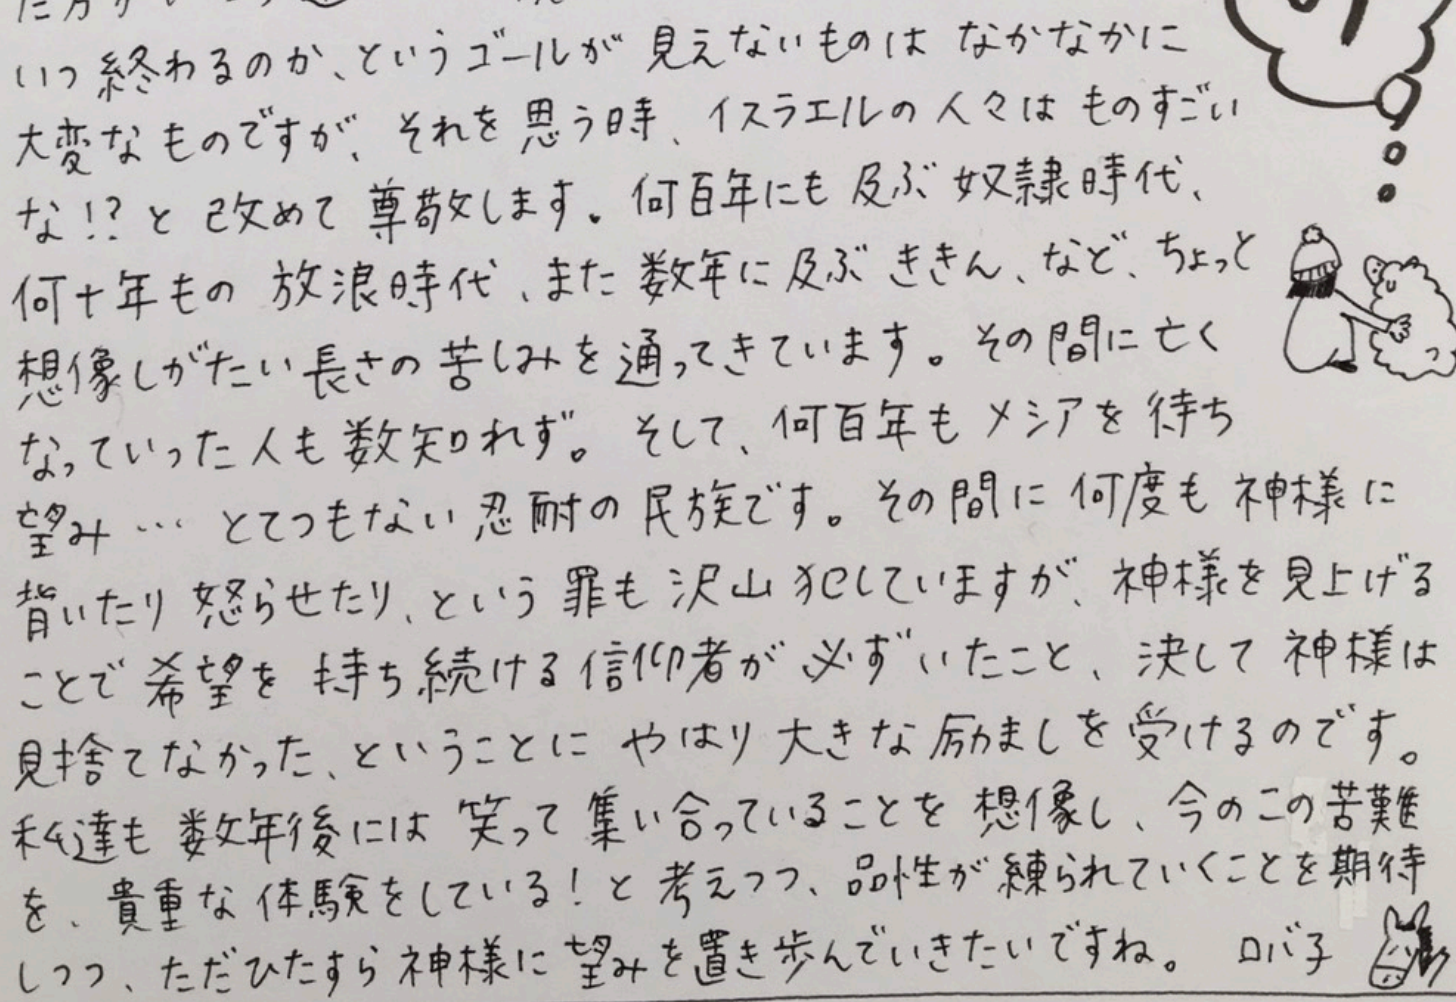 いつ終わるのか、というゴールが見えないものはなかなかに
大変なものですが、それを思う時、イスラエルの人々はものすごい
な!?と改めて尊敬します。何百年にも及ぶ奴隷時代、
何十年もの放浪時代、また数年に及ぶききん、など、ちょっと
想像しがたい長さの苦しみを通ってきています。その間に亡く
なっていった人も数知れず。そして、何百年もメシアを待ち
望み…とてつもない忍耐の民族です。その間に何度も神様に
背いたり怒らせたり、という罪も沢山犯していますが、神様を見上げる
ことで希望を持ち続ける信仰者が必ずいたこと、決して神様は
見捨てなかった、ということにやはり大きな励ましを受けるのです。
私達も数年後には笑って集い合っていることを想像し、今のこの苦難
を、貴重な体験をしている!と考えつつ、品性が練られていくことを期待
しつつ、ただひたすら神様に望みを置き歩んでいきたいですね。 ロバ子